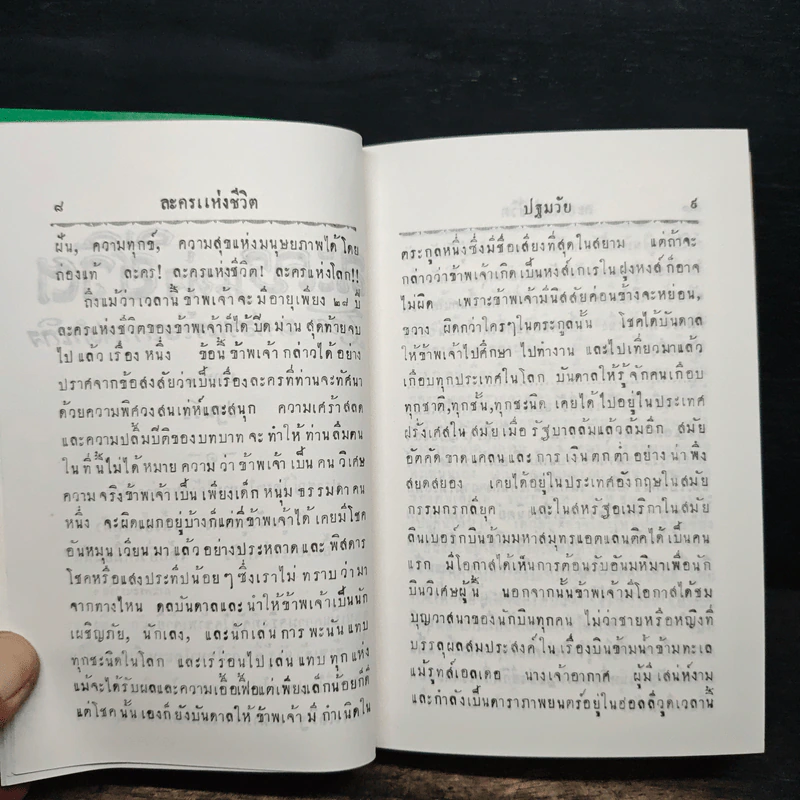 ๘ ละครแห่งชีวิต
ฝัน, ความทุกข์, ความสุขแห่งมนุษยภาพได้ โดย
ถ่องแท้ ละคร! ละครแห่งชีวิต! ละครแห่งโลก!!
ถึงแม้ว่า เวลานี้ ข้าพเจ้า จะ มี อายุเพียง ๒๘ ปี
ละครแห่งชีวิตของ ข้าพเจ้าก็ได้ ปิด ม่าน สุดท้ายจบ
ไป แล้ว เรื่อง หนึ่ง ข้อนี้ ข้าพเจ้า กล่าวได้ อย่าง
ปราศจากข้อสงสัยว่าเป็นเรื่องละครที่ท่านจะทัศนา
ด้วยความพิศวงสนเท่ห์และสนุก ความเศร้าสลด
และความปลื้มปีติของบทบาท จะ ทำให้ ท่าน ลืมตน
ใน ที่ นี้ไม่ได้ หมาย ความ ว่า ข้าพเจ้า เป็น คน วิเศษ
ความ จริงข้าพเจ้า เป็น เพียงเด็ก หนุ่ม ธรรมดา คน
หนึ่ง จะผิดแผกอยู่บ้างก็แต่ที่ข้าพเจ้าได้ เคยมีโชค
อันหมุน เวียน มา แล้ว อย่างประหลาด และ พิสดาร
โชคหรือแสงประทีปน้อย ๆ ซึ่งเราไม่ ทราบ ว่า มา
จากทางไหน ดลบันดาลและ นำให้ ข้าพเจ้าเป็นนัก
เผชิญภัย, นักเลง, และนักเล่น การ พะนัน แทบ
ทุกชะนิดในโลก และเร่ร่อนไป เล่น แทบ ทุก แห่ง
แม้จะได้รับผลและความเอื้อเฟื้อแต่เพียงเล็กน้อยก็ดี
แต่ โชค นั้น เองก็ ยังบันดาลให้ ข้าพเจ้า มี กำเนิดใน
ปฐมวัย ๙
ตระกูลหนึ่งซึ่งมีชื่อเสียงที่สุดในสยาม แต่ถ้าจะ
กล่าวว่าข้าพเจ้าเกิด เป็นหงส์เกเรใน ฝูงหงส์ ก็อาจ
ไม่ผิด เพราะข้าพเจ้ามีนิสสัยค่อนข้างจะหย่อน,
ขวาง ผิดกว่าใครๆในตระกูลนั้น โชคได้บันดาล
ให้ข้าพเจ้าไปศึกษา ไปทำงาน และไปเที่ยวมาแล้ว
เกือบทุกประเทศในโลก บันดาลให้รู้จักคนเกือบ
ทุกชาติ,ทุกชั้น,ทุกชะนิด เคยได้ไปอยู่ในประเทศ
ฝรั่งเศสใน สมัย เมื่อ รัฐบาลล้มแล้วล้มอีก สมัย
อัตคัด ขาด แคลน และ การ เงิน ตกต่ำ อย่าง น่าพึง
สยดสยอง เคยได้อยู่ในประเทศอังกฤษในสมัย
กรรมกรกลียุค และในสหรัฐอเมริกาในสมัย
ลินเบอร์กบินข้ามมหาสมุทรแอตแลนติคได้เป็นคน
แรก มีโอกาสได้เห็นการต้อนรับอันมหึมาเพื่อนัก
บินวิเศษผู้นี้ นอกจากนั้นข้าพเจ้ามีโอกาสได้ชม
บุญวาสนาของนักบินทุกคน ไม่ว่าชายหรือหญิงที่
บรรลุผลสมประสงค์ใน เรื่องบินข้ามน้ำข้ามทะเล
แม้รูทส์เอลเดอ นางเจ้าอากาศ ผู้มีเสน่ห์งาม
และกำลังเป็นดาราภาพยนตร์อยู่ในฮอลลีวูดเวลานี้